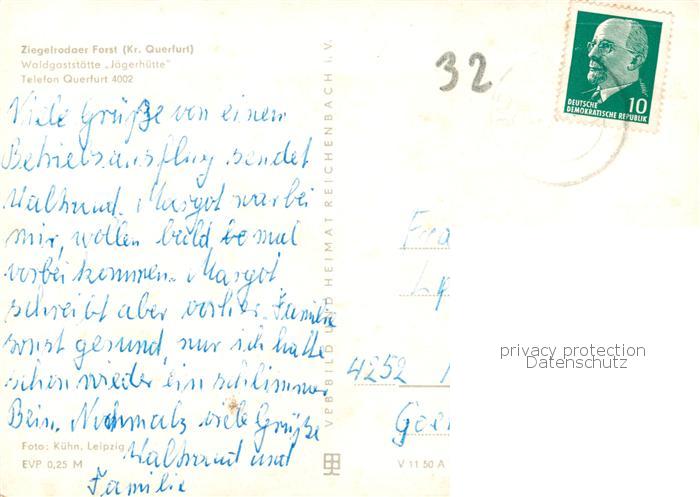 Ziegelrodaer Forst (Kr. Querfurt)
Waldgaststätte „Jägerhütte"
Telefon Querfurt 4002
Viele Grüße von einem
Betriebsausflug sendet
Waltraud. Margot war bei
mir, wollen bald, be mal
vorbei kommen. Margot
schreibt aber vorher. Familie
sonst gesund, nur ich hatte
schon wieder ein schlimmes
Bein. Nochmals viele Grüße
Waltraud und
Familie
Foto: Kühn, Leipzig
EVP 0,25 M
VEB BILD UND HEIMAT REICHENBACH I. V.
V 11 50 A
32
DEUTSCHE
DEMOKRATISCHE REPUBLIK
10
Fra
4252
privacy protection
Datenschutz